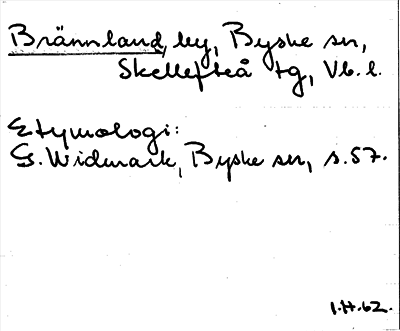 Brännland, by, Byske sn,
Skellefteå tg, Vb. l.
Etymologi:
G. Widmark, Byske sn, s. 57.
I.H.62.